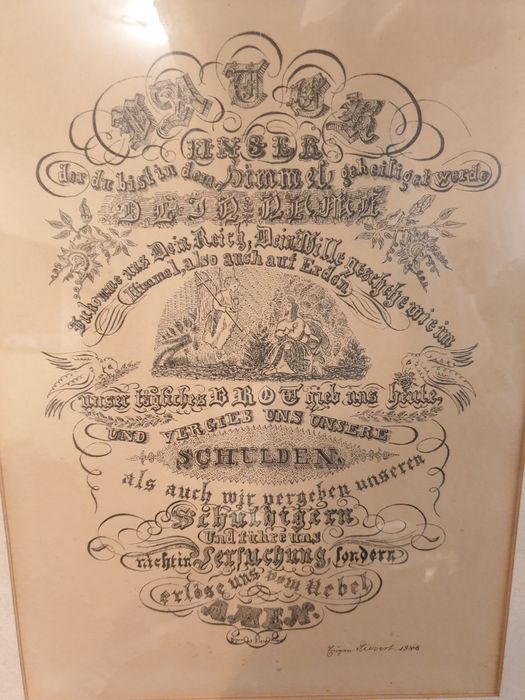 VATER
UNSER
der du bist in dem Himmel, geheiliget werde
DEIN NAME
Zukomme uns Dein Reich, Dein Wille geschehe wie im
Himmel, also auch auf Erden,
unser tägliches BROT gieb uns heute,
UND VERGIEB UNS UNSERE
SCHULDEN.
als auch wir vergeben unseren
Schuldigern
Und führe uns
nicht in Versuchung, sondern
erlöse uns vom Uebel
AMEN.